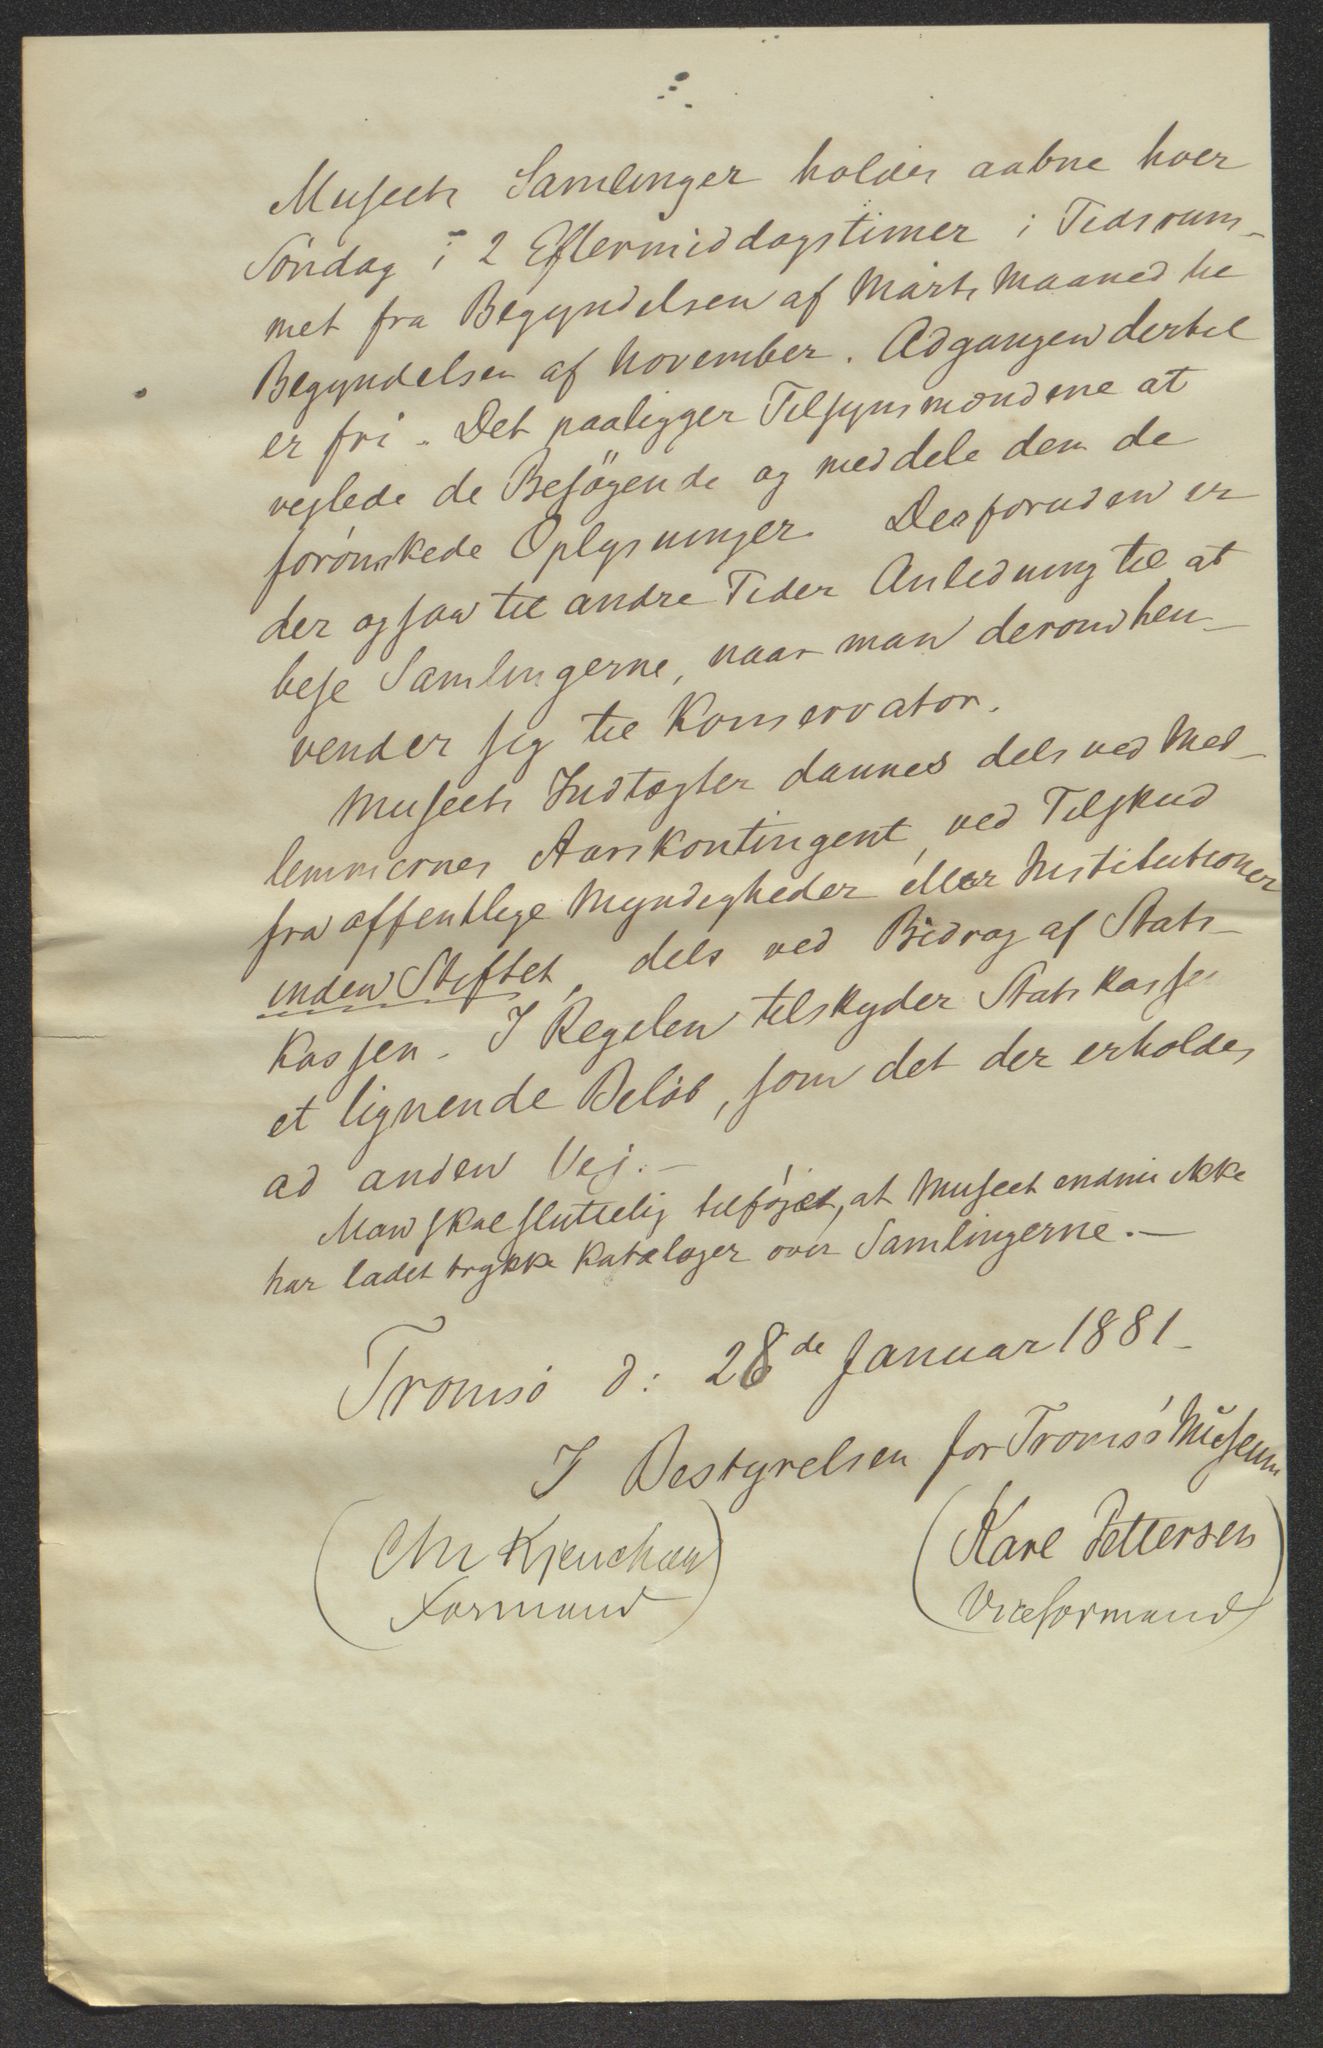 Museets Samlinger holdes aabne hver
Söndag i 2 Eftermiddagstimer i Tidsrum-
met fra Begyndelsen af Marts Maaned til
Begyndelsen af November. Adgangen dertil
er fri. Det paaligger Tilsynsmændene at
vejlede de Besögende og meddele dem de
forönskede Oplysninger. Desforuden er
der ogsaa til andre Tider Anledning til at
bese Samlingerne, naar man derom hen-
vender sig til Konservator.
Museets Indtægter dannes dels ved Med-
lemmernes Aarskontingent, ved Tilskud
fra offentlige Myndigheder eller Institutioner
inden Stiftet, dels ved Bidrag af Stats-
kassen. I Regelen tilskyder Statskassen
et lignende Belöb, som det der erholdes
ad anden Vej.-
Man skal sluttelig tilföjet, at Museet endnu ikke
har ladet trykke Kataloger over Samlingerne.-
Tromsö d: 28de Januar 1881-
I Bestyrelsen for Tromsö Museum
(Chr Kjeuchan) (Karl Pettersen
Formand Viceformand)